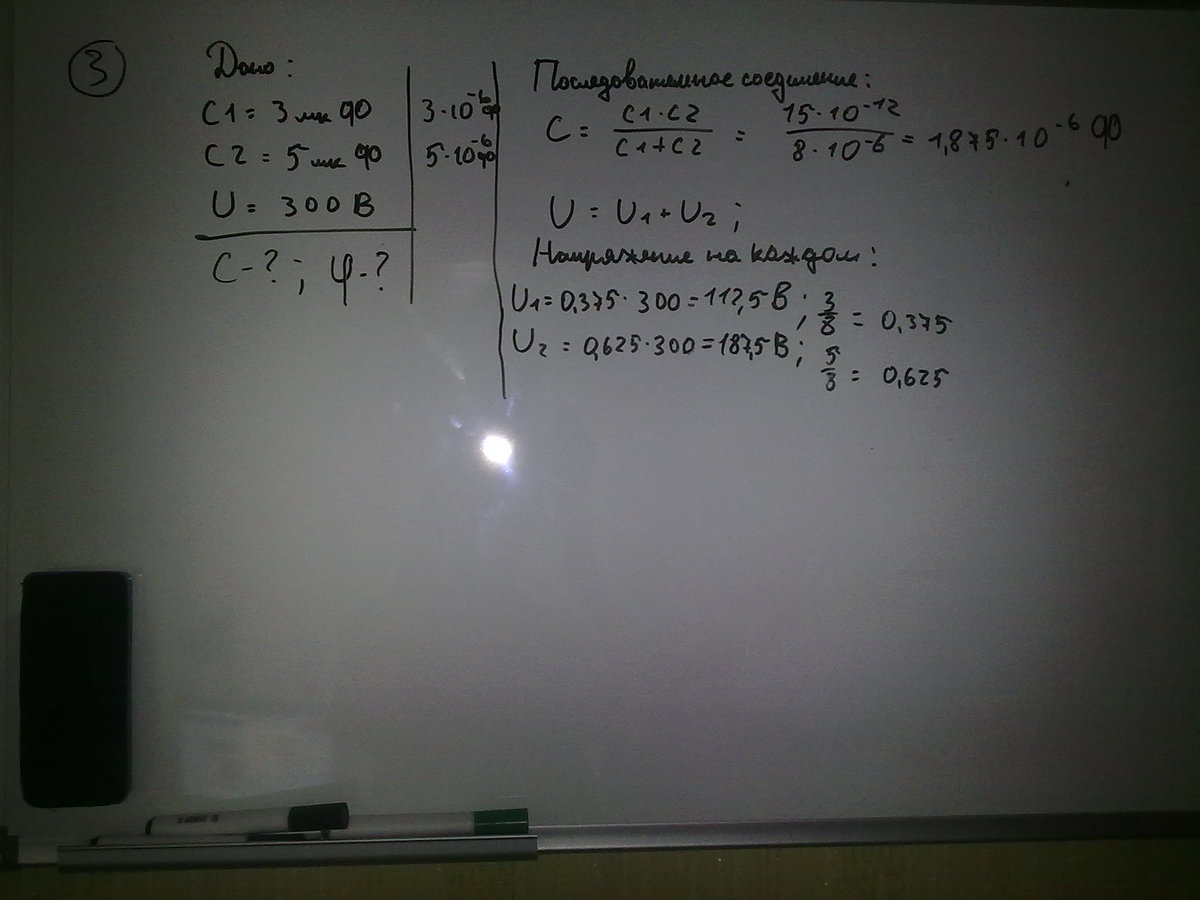 3
Дано:
C1 = 3 мк Ф
3·10⁻⁶ Ф
C2 = 5 мк Ф
5·10⁻⁶ Ф
U = 300 В
C-?; φ-?
Последовательное соединение:
C = C1·C2 / C1+C2 = 15·10⁻¹² / 8·10⁻⁶ = 1,875·10⁻⁶ Ф
U = U₁ + U₂;
Напряжение на каждом:
U₁ = 0,375·300 = 112,5 В; 3/8 = 0,375
U₂ = 0,625·300 = 187,5 В; 5/8 = 0,625